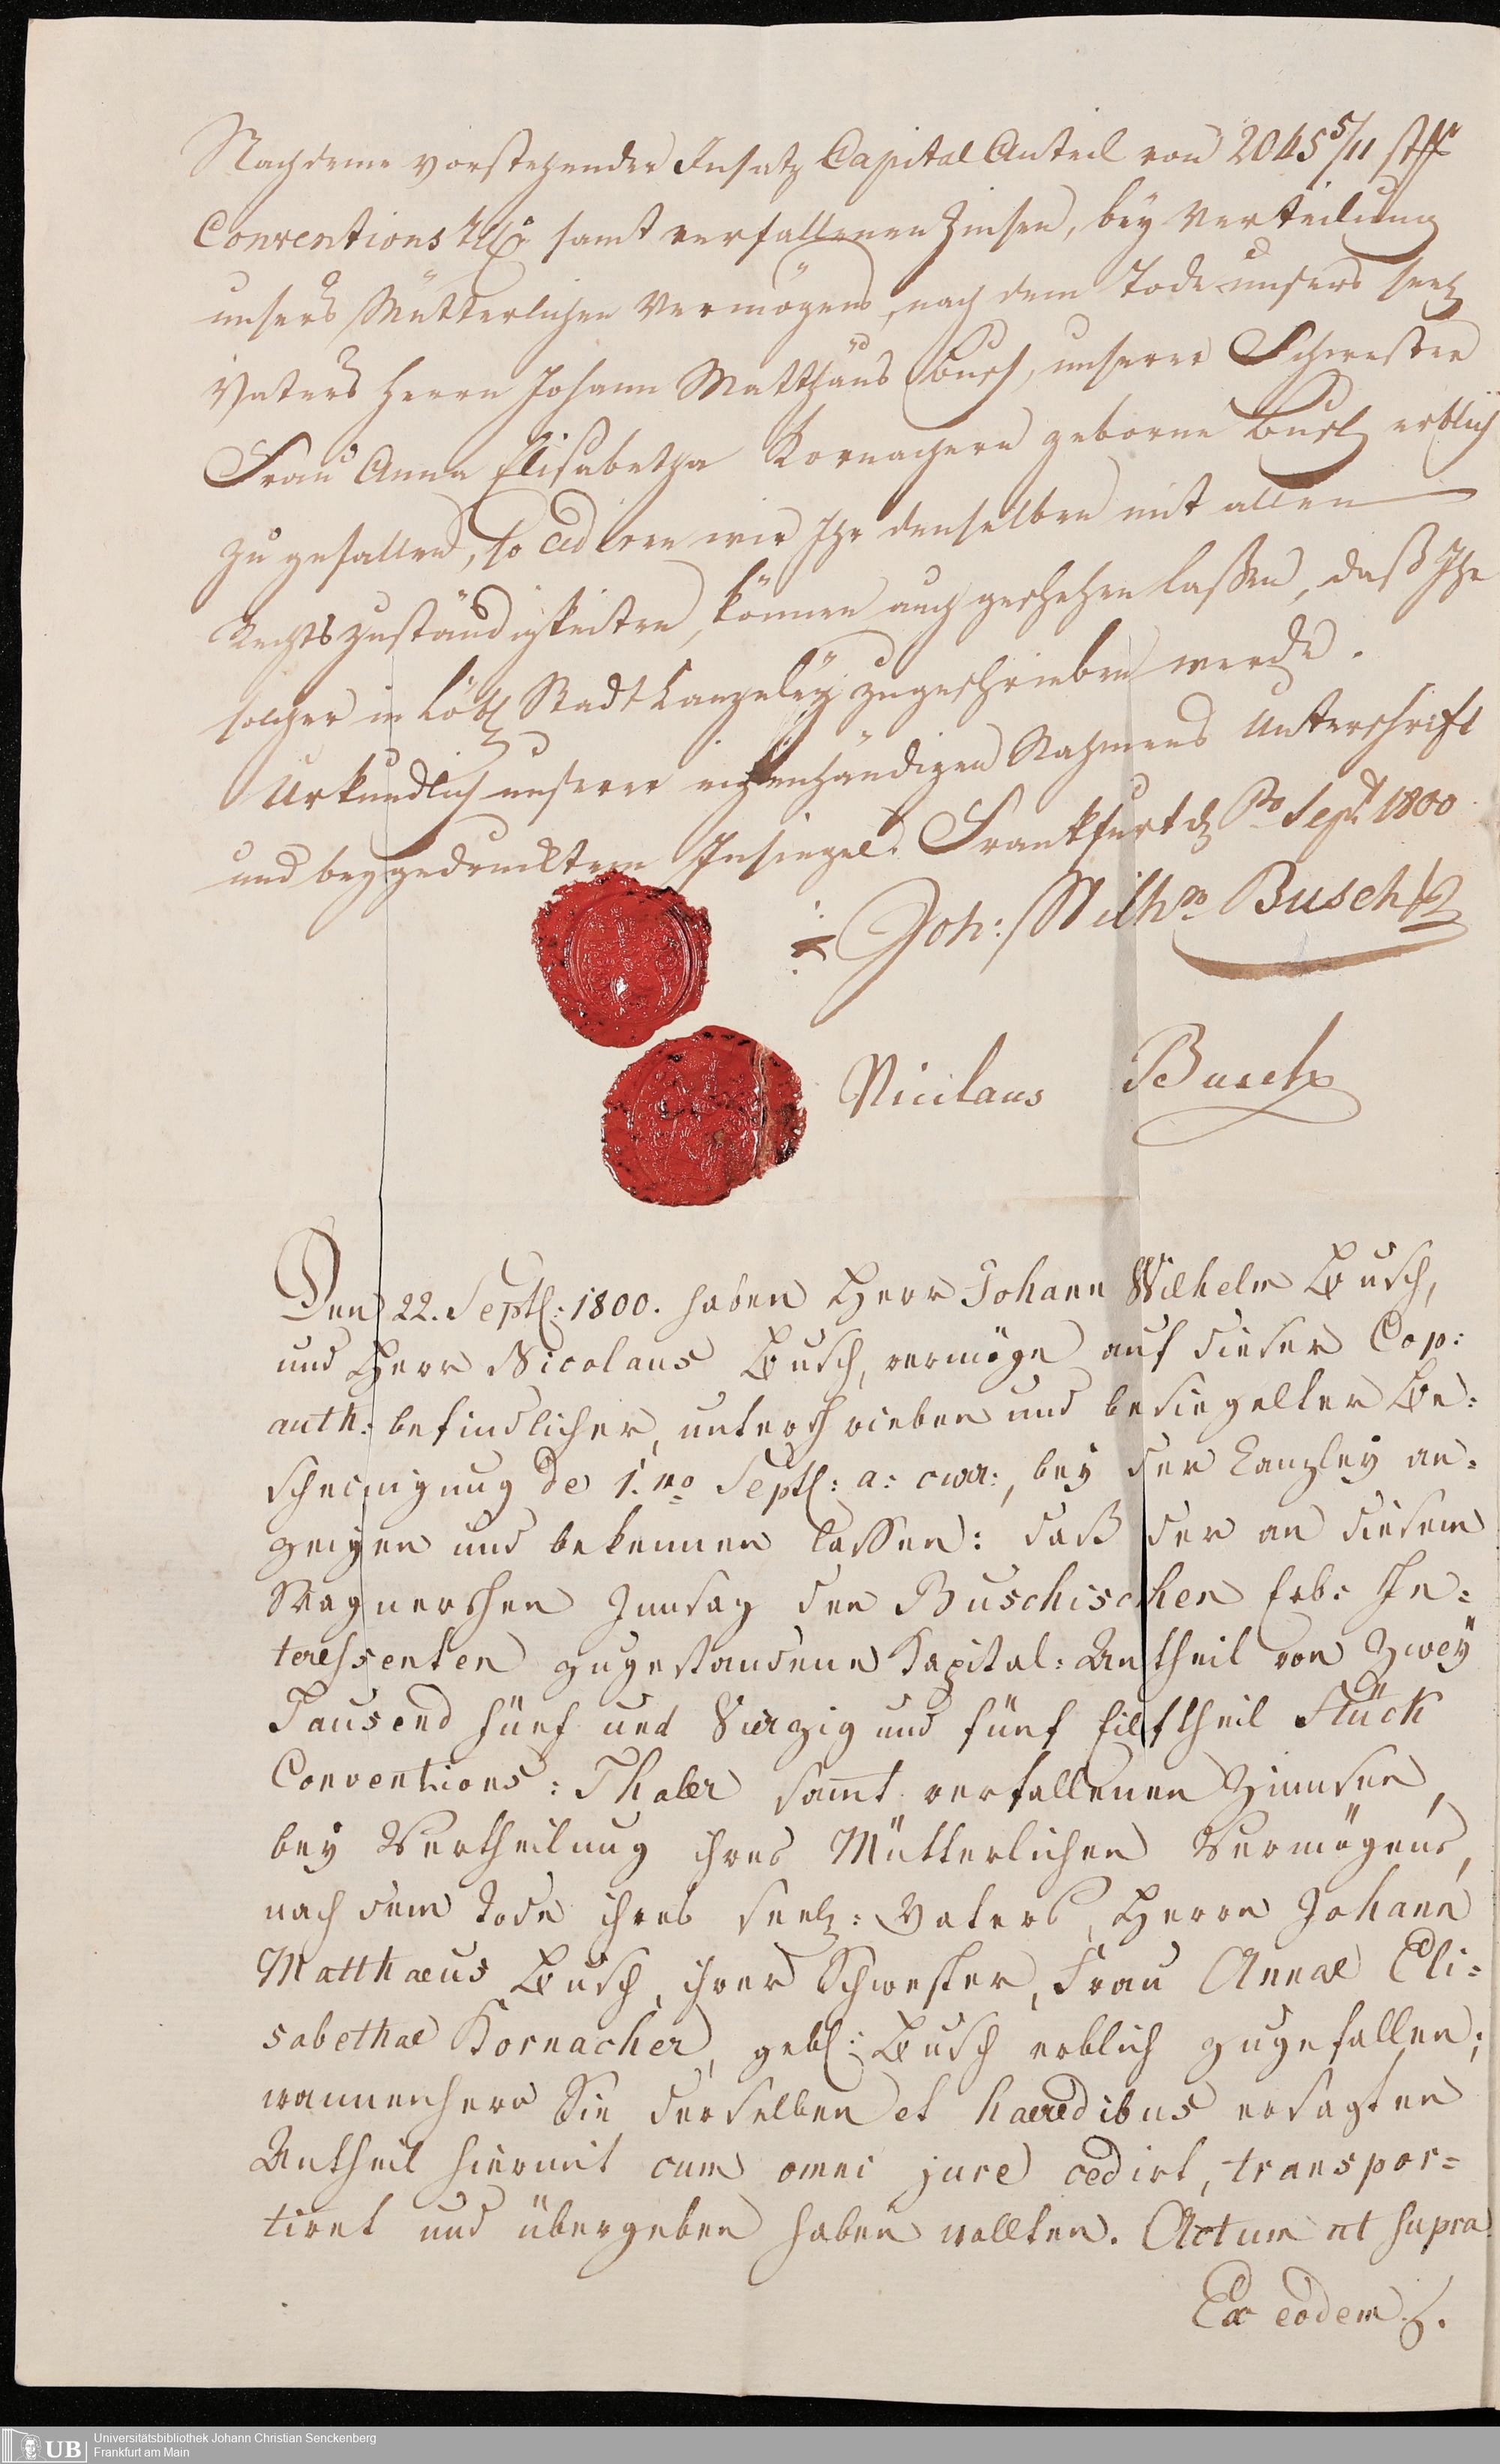 Nachdeme vorstehender Insatz Capital Anteil von 2045 5/11 stk
Conventions samt verfallenen Zinsen, bey Verteilung
unsers Mütterlichen Vermögens, nach dem Tode unsers seel
Vaters Herrn Johann Matthäus Busch, unserer Schwester
Frau Anna Elisabetha Kornachern geborne Busch erblich
zu gefallen, so cediren wir Ihr denselben mit allen
Rechtszuständigkeiten, können auch geschehen laßen, daß Ihr
solcher in Löbl Stadt Canzeley zugeschrieben werde.
Urkundlich unserer eigenhändigen Nahmens Unterschrift
und beygedrucktem Insiegel. Frankfurt d Sept 1800
Joh: Wilhm Busch
Nicolaus Busch
Den 22. Septl: 1800. haben Herr Johann Wilhelm Busch,
und Herr Nicolaus Busch, vermöge auf dieser Cop:
auth: befindlicher, unterschrieben und besiegelter Be:
scheinigung de 1.mo Septl: a: curr:, bey der Canzley an:
zeigen und bekennen lassen: daß der an diesem
Wagnerschen Innsaz den Buschischen Erb: In:
teressenten zugestandene Kapital: Antheil von Zwey
Tausend fünf und Vierzig und fünf Eilftheil Stück
Conventions: Thaler samt verfallenen Zinnsen,
bey Vertheilung ihres Mütterlichen Vermögens,
nach dem Tode ihres seel: Vaters, Herrn Johann
Matthaeus Busch, ihrer Schwester, Frau Annae Eli:
sabethae Kornacher, gebl: Busch erblich zugefallen;
wannenhero Sie derselben et haeredibus ersagten
Antheil hiermit cum omni jure cedirt, transpor=
tiret und übergeben haben wollten. Actum ut supra
Ex eodem
UB
Universitätsbibliothek Johann Christian Senckenberg
Frankfurt am Main